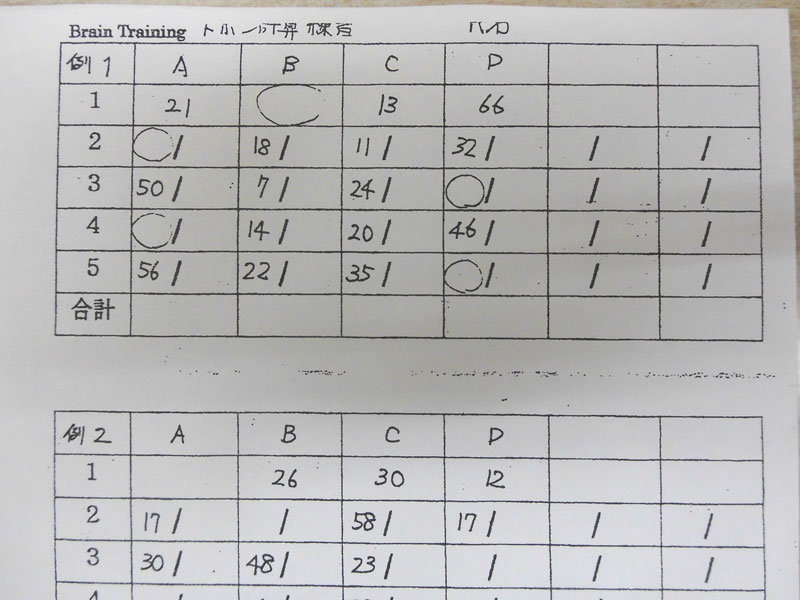 Brain Training
例1 A B C D
1 21 13 66
2 / 18/ 11/ 32/ / /
3 50/ 7/ 24/ / / /
4 / 14/ 20/ 46/ / /
5 56/ 22/ 35/ / / /
合計
例2 A B C D
1 26 30 12
2 17/ / 58/ 17/ / /
3 30/ 48/ 23/ / / /